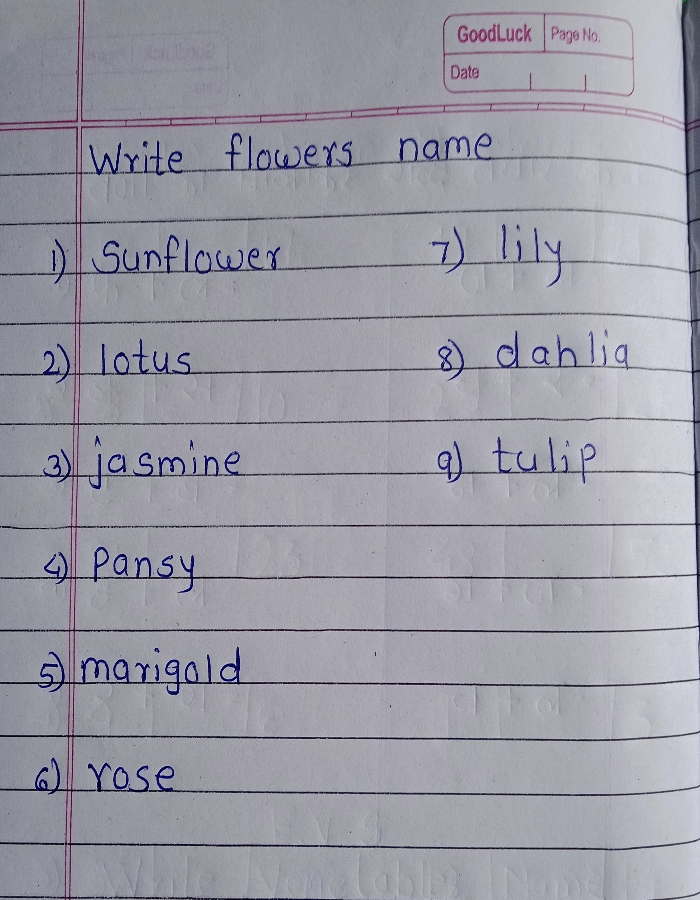 GoodLuck Page No.
Date
Write flowers name
1) Sunflower
2) lotus
3) jasmine
4) Pansy
5) marigold
6) rose
7) lily
8) dahlia
9) tulip